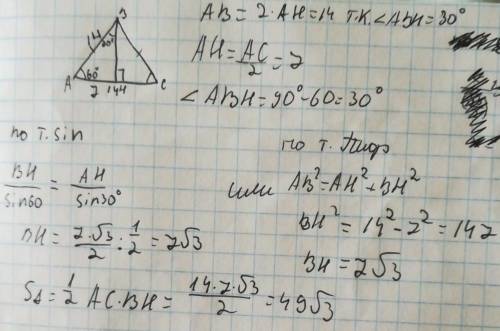 B
14
30°
A
60°
H
C
7
14
AB = 2·AH = 14 т.к. ∠ABH = 30°
AH = AC/2 = 7
∠ABH = 90° - 60 = 30°
по т. sin
BH/sin60 = AH/sin30°
BH = 7·√3/2 : 1/2 = 7√3
по т. Пиф
или AB² = AH² + BH²
BH² = 14² - 7² = 147
BH = 7√3
S△ = 1/2 AC·BH = 14·7·√3/2 = 49√3